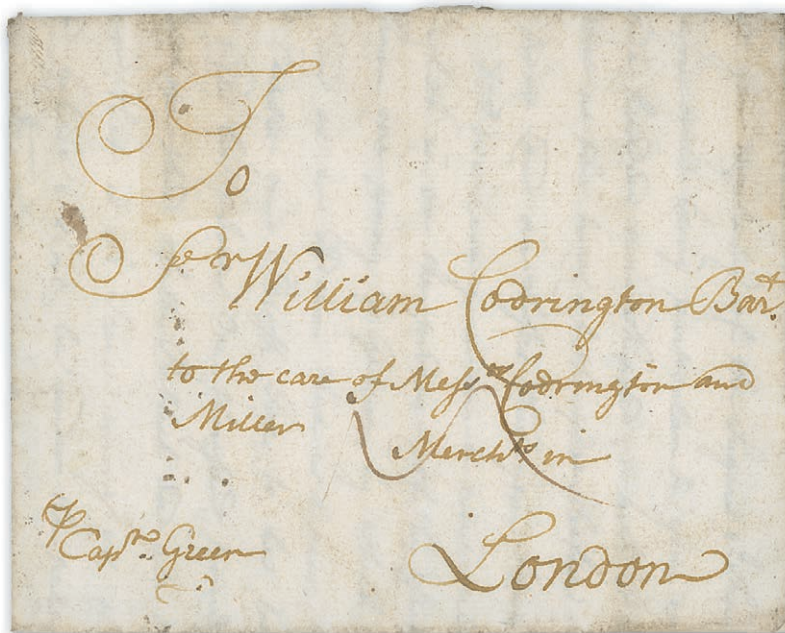 To
Ser William Codrington Bart.
to the care of Messrs Codrington and
Miller
Merchts in
London
⅌ Captn Green